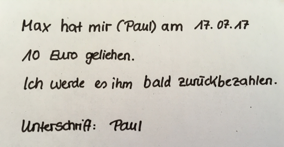 Max hat mir (Paul) am 17.07.17
10 Euro geliehen.
Ich werde es ihm bald zurückbezahlen.
Unterschrift: Paul